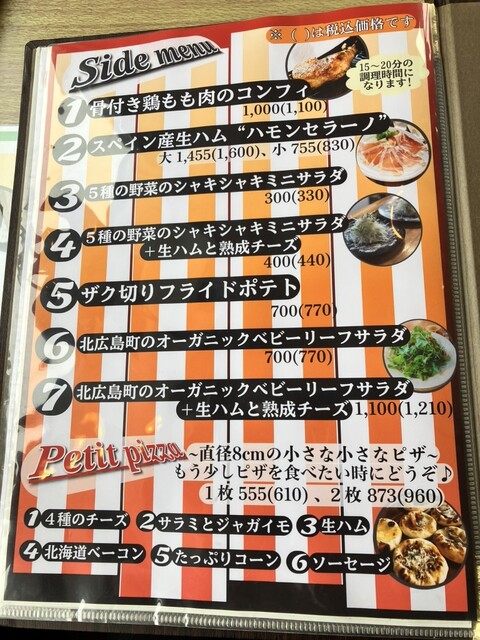 ※（ ）は税込価格です
Side menu
15〜20分の
調理時間に
なります!
1 骨付き鶏もも肉のコンフィ
1,000(1,100)
2 スペイン産生ハム“ハモンセラーノ”
大 1,455(1,600)、小 755(830)
3 5種の野菜のシャキシャキミニサラダ
300(330)
4 5種の野菜のシャキシャキミニサラダ
＋生ハムと熟成チーズ
400(440)
5 ザク切りフライドポテト
700(770)
6 北広島町のオーガニックベビーリーフサラダ
700(770)
7 北広島町のオーガニックベビーリーフサラダ
＋生ハムと熟成チーズ 1,100(1,210)
Petit pizza 〜直径8cmの小さな小さなピザ〜
もう少しピザを食べたい時にどうぞ♪
1枚 555(610) 、2枚 873(960)
1 4種のチーズ 2 サラミとジャガイモ 3 生ハム
4 北海道ベーコン 5 たっぷりコーン 6 ソーセージ